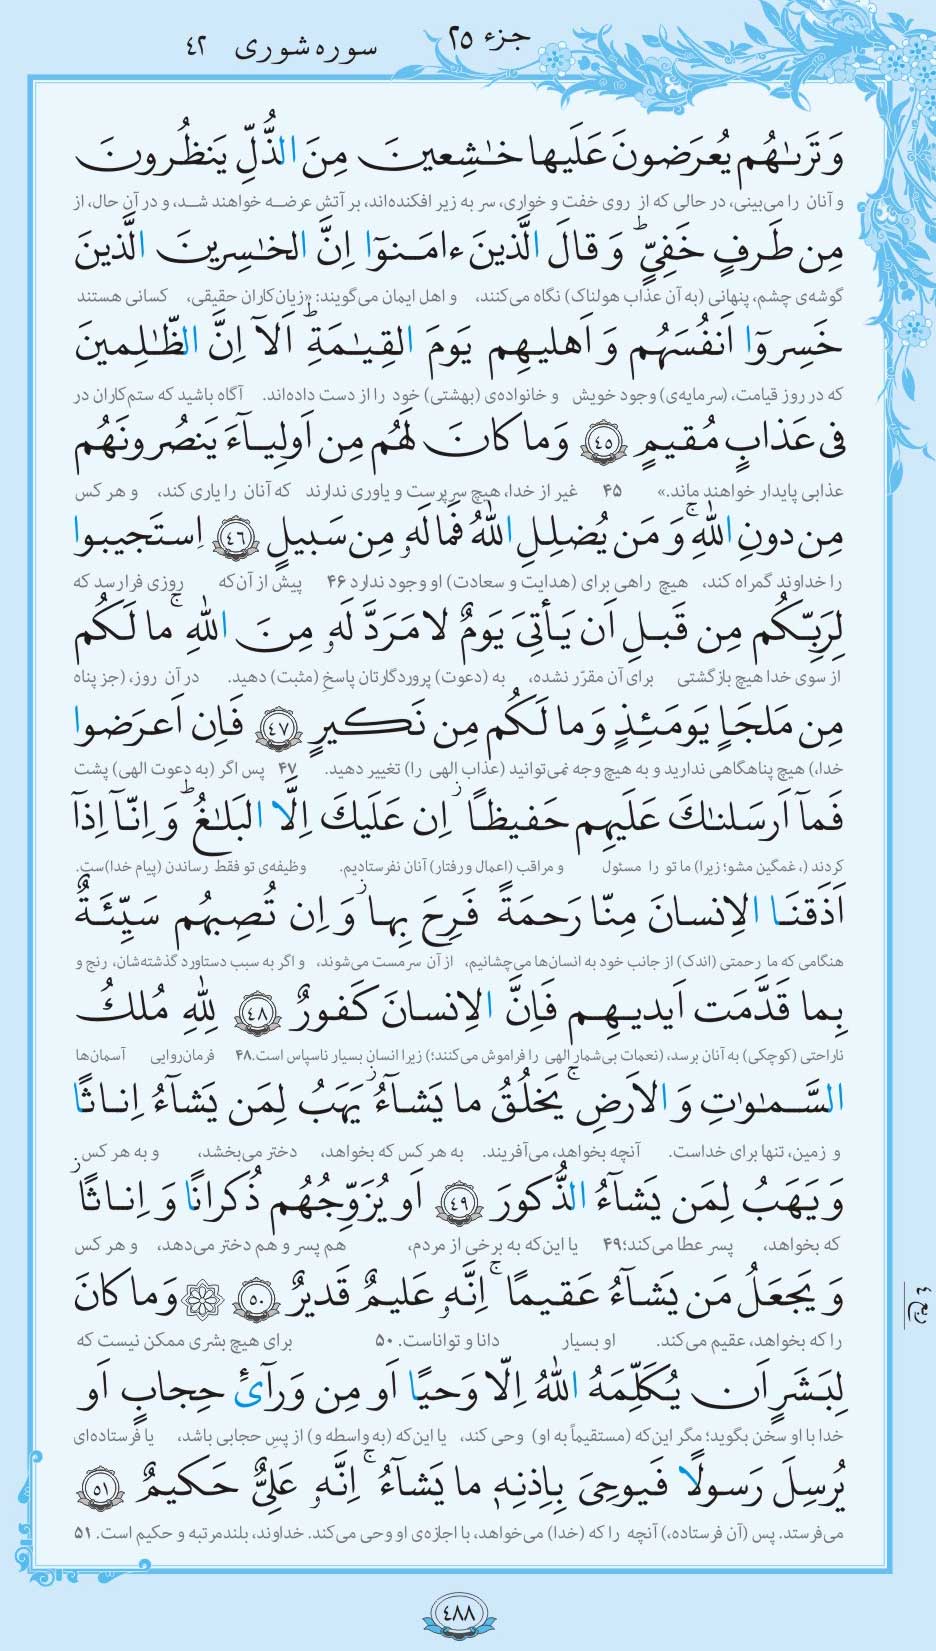 جزء ٢٥ سوره شوری ٤٢
وَ تَرىٰهُم يُعرَضونَ عَلَيها خٰشِعينَ مِنَ الذُّلِّ يَنظُرونَ
و آنان را می‌بینی، در حالی که از روی خفت و خواری، سر به زیر افکنده‌اند، بر آتش عرضه خواهند شد، و در آن حال، از
مِن طَرفٍ خَفِيٍّ ۗ وَ قالَ الَّذينَ ءامَنوٓا اِنَّ الخٰسِرينَ الَّذينَ
گوشه‌ی چشم، پنهانی (به آن عذاب هولناک) نگاه می‌کنند، و اهل ایمان می‌گویند: «زیان‌کاران حقیقی، کسانی هستند
خَسِروٓا اَنفُسَهُم وَ اَهليهِم يَومَ القِيٰمَةِ ۗ اَلآ اِنَّ الظّٰلِمينَ
که در روز قیامت، (سرمایه‌ی) وجود خویش و خانواده‌ی (بهشتی) خود را از دست داده‌اند. آگاه باشید که ستم‌کاران در
فى عَذابٍ مُقيمٍ ٤٥ وَما كانَ لَهُم مِن اَولِيآءَ يَنصُرونَهُم
عذابی پایدار خواهند ماند.» ۴۵ غیر از خدا، هیچ سرپرست و یاوری ندارند که آنان را یاری کند، و هر کس
مِن دونِ اللّٰهِ ۚ وَ مَن يُضلِلِ اللّٰهُ فَما لَهُ مِن سَبيلٍ ٤٦ اِستَجيبوا
را خداوند گمراه کند، هیچ راهی برای (هدایت و سعادت) او وجود ندارد ۴۶ پیش از آن‌که روزی فرارسد که
لِرَبِّكُم مِن قَبلِ اَن يَأتِىَ يَومٌ لا مَرَدَّ لَهُ مِنَ اللّٰهِ ۚ ما لَكُم
از سوی خدا هیچ بازگشتی برای آن مقرّر نشده، به (دعوت) پروردگارتان پاسخ (مثبت) دهید. در آن روز، (جز پناه
مِن مَلجَاٍ يَومَئِذٍ وَ ما لَكُم مِن نَكيرٍ ٤٧ فَاِن اَعرَضوا
خدا،) هیچ پناهگاهی ندارید و به هیچ وجه نمی‌توانید (عذاب الهی را) تغییر دهید. ۴۷ پس اگر (به دعوت الهی) پشت
فَمآ اَرسَلنٰكَ عَلَيهِم حَفيظًا ۖ اِن عَلَيكَ اِلَّا البَلٰغُ ۗ وَ اِنّآ اِذآ
کردند (، غمگین مشو؛ زیرا) ما تو را مسئول و مراقب (اعمال و رفتار) آنان نفرستادیم. وظیفه‌ی تو فقط رساندن (پیام خدا)ست.
اَذَقنَا الاِنسانَ مِنّا رَحمَةً فَرِحَ بِها ۖ وَ اِن تُصِبهُم سَيِّئَةٌ
هنگامی که ما رحمتی (اندک) از جانب خود به انسان‌ها می‌چشانیم، از آن سرمست می‌شوند، و اگر به سبب دستاورد گذشته‌شان، رنج و
بِما قَدَّمَت اَيديهِم فَاِنَّ الاِنسانَ كَفورٌ ٤٨ لِلّٰهِ مُلكُ
ناراحتی (کوچکی) به آنان برسد، (نعمات بی‌شمار الهی را فراموش می‌کنند؛) زیرا انسان بسیار ناسپاس است. ۴۸ فرمان‌روایی آسمان‌ها
السَّمٰوٰتِ وَ الاَرضِ ۚ يَخلُقُ ما يَشآءُ ۖ يَهَبُ لِمَن يَشآءُ اِناثًا
و زمین، تنها برای خداست. آنچه بخواهد، می‌آفریند. به هر کس که بخواهد، دختر می‌بخشد، و به هر کس
وَ يَهَبُ لِمَن يَشآءُ الذُّكورَ ٤٩ اَو يُزَوِّجُهُم ذُكرانًا وَ اِناثًا ۖ
که بخواهد، پسر عطا می‌کند؛ ۴۹ یا این‌که به برخی از مردم، هم پسر و هم دختر می‌دهد، و هر کس
وَ يَجعَلُ مَن يَشآءُ عَقيمًا ۚ اِنَّهُ عَليمٌ قَديرٌ ٥٠ وَما كانَ
را که بخواهد، عقیم می‌کند. او بسیار دانا و تواناست. ۵۰ برای هیچ بشری ممکن نیست که
ربع ٤
لِبَشَرٍ اَن يُكَلِّمَهُ اللّٰهُ اِلّا وَحيًا اَو مِن وَرآئِ حِجابٍ اَو
خدا با او سخن بگوید؛ مگر این‌که (مستقیماً به او) وحی کند، یا این‌که (به واسطه و) از پس حجابی باشد، یا فرستاده‌ای
يُرسِلَ رَسولًا فَيوحِىَ بِاِذنِه ما يَشآءُ ۚ اِنَّهُ عَلِىٌّ حَكيمٌ ٥١
می‌فرستد. پس (آن فرستاده،) آنچه را که (خدا) می‌خواهد، با اجازه‌ی او وحی می‌کند. خداوند، بلندمرتبه و حکیم است. ۵۱
٤٨٨